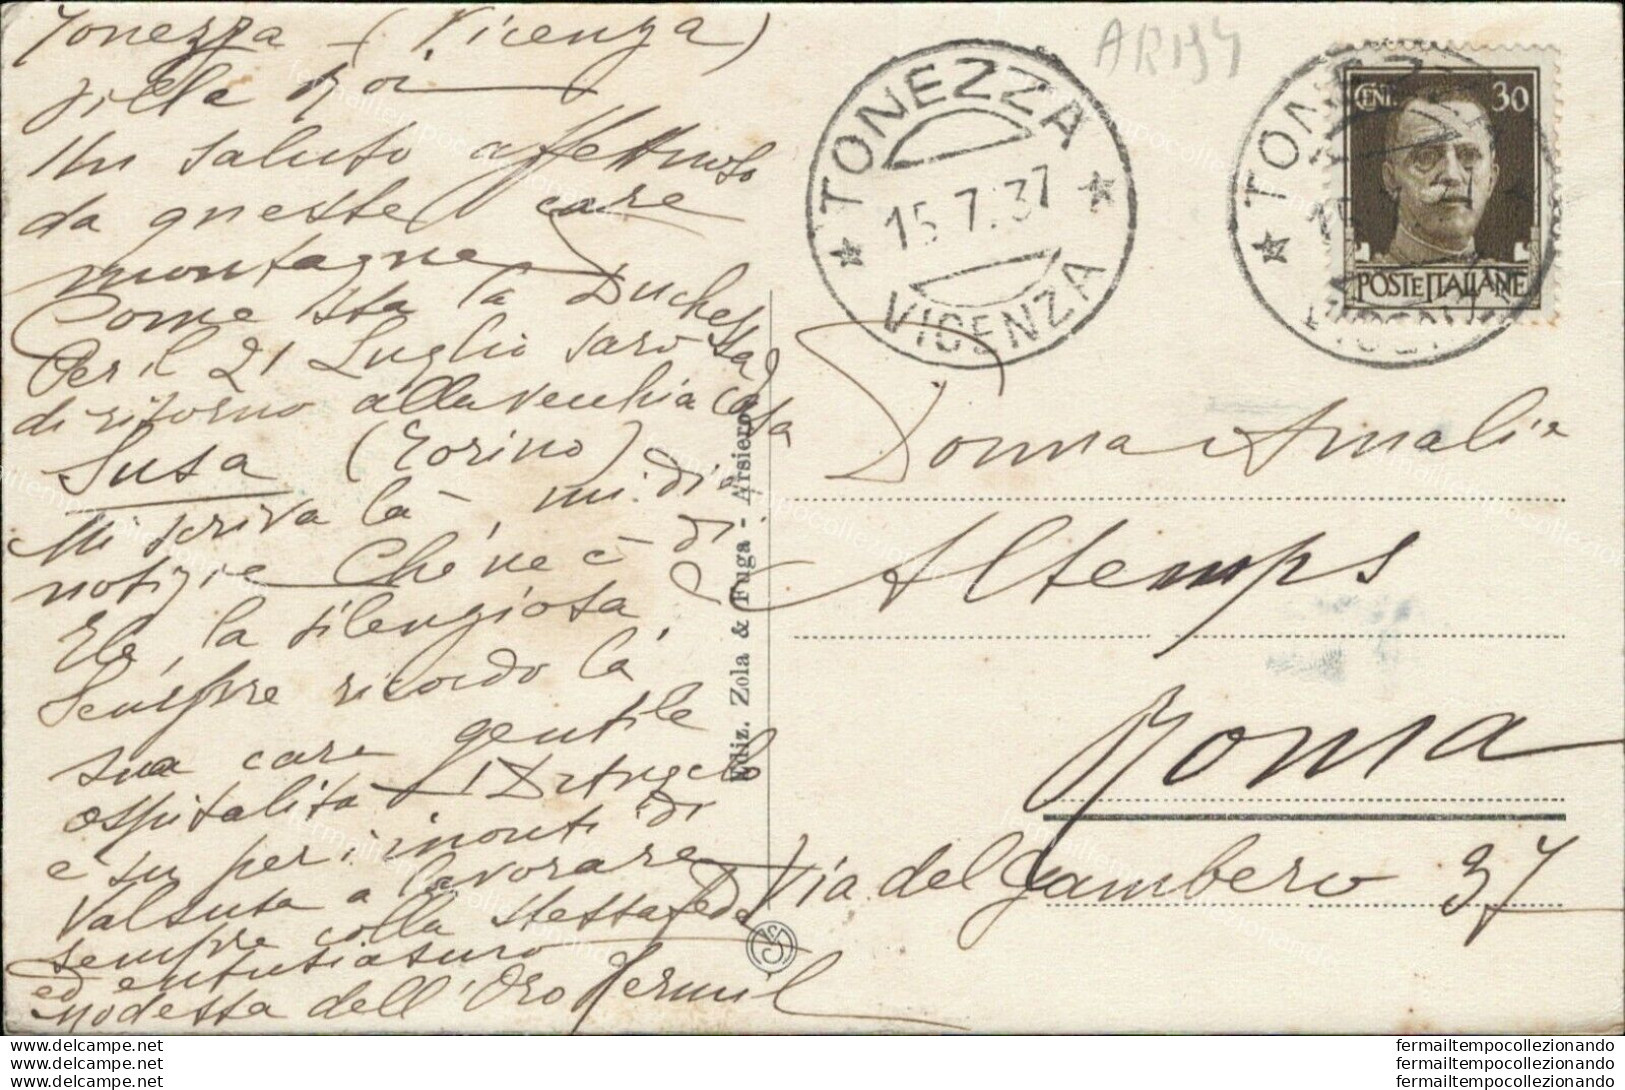 Tonezza - (Vicenza)
Ville Roi
Un saluto affettuoso
da queste care
montagne
Come sta la Duchessa
Per il 21 Luglio sarò
di ritorno alla vecchia casa
Susa (Torino)
Mi scriva là, mi dia
notizie Che ne è di
Ela, la silenziosa
Sempre ricordo la
sua cara gentile
ospitalità D'Angelo
e su per i monti di
Valsusa a lavorare
sempre colla stessa fede
ed entusiasmo
modesta dell'Oro
Ediz. Zola & Fuga - Arsiero
AR134
TONEZZA
15.7.37
VICENZA
TONEZZA
15
VICENZA
CENT. 30
POSTE ITALIANE
Donna Amalia
Altemps
Roma
Via del Gambero 37
fermailtempocollezionando
www.delcampe.net fermailtempocollezionando
www.delcampe.net fermailtempocollezionando
www.delcampe.net fermailtempocollezionando